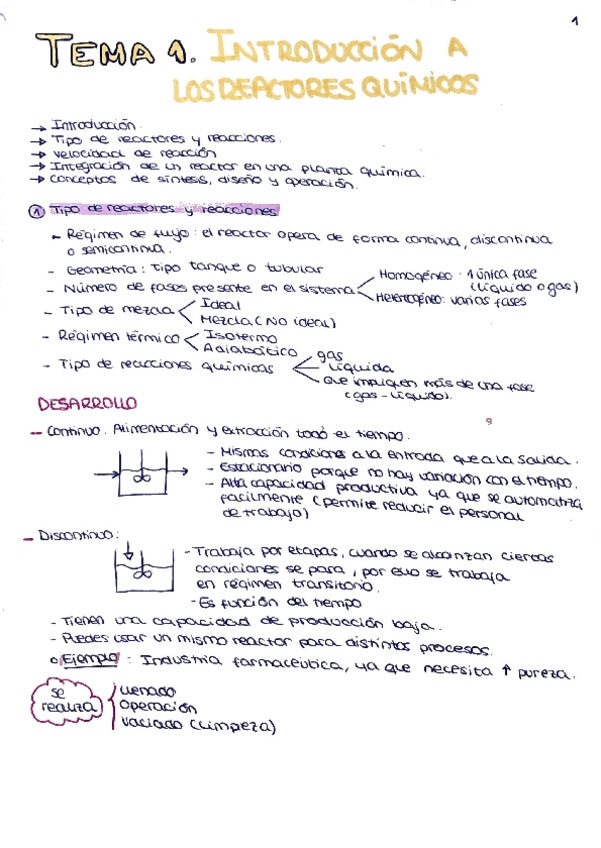 1
TEMA 1. INTRODUCCIÓN A
LOS REACTORES QUÍMICOS
→ Introducción.
→ Tipo de reactores y reacciones.
→ Velocidad de reacción
→ Integración de un reactor en una planta química.
→ Conceptos de síntesis, diseño y operación.
① Tipo de reactores y reacciones
- Régimen de flujo: el reactor opera de forma continua, discontinua
o semicontinua.
- Geometría: Tipo tanque o tubular
- Número de fases presente en el sistema
Homogéneo: 1 única fase
(líquido o gas)
Heterogéneo: varias fases
- Tipo de mezcla
Ideal
Mezcla (No ideal)
- Régimen térmico
Isotermo
Adiabático
- Tipo de reacciones químicas
gas
líquida
Que impliquen más de una fase
(gas-líquido).
DESARROLLO
- Continuo. Alimentación y extracción todo el tiempo.
- Mismas condiciones a la entrada que a la salida.
- Estacionario porque no hay variación con el tiempo.
- Alta capacidad productiva ya que se automatiza
facilmente (permite reducir el personal
de trabajo)
- Discontinuo:
- Trabaja por etapas, cuando se alcanzan ciertas
condiciones se para, por eso se trabaja
en régimen transitorio.
- Es función del tiempo
- Tienen una capacidad de producción baja.
- Puedes usar un mismo reactor para distintos procesos.
o Ejemplo: Industria farmaceútica, ya que necesita ↑ pureza.
se
realiza
Llenado
Operación
Vaciado (Limpieza)